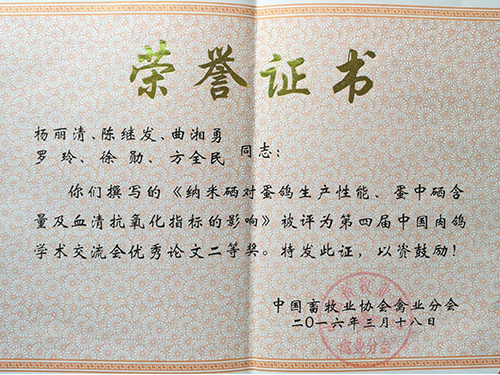 荣誉证书
杨丽清、陈继发、曲湘勇
罗玲、徐勋、方全民 同志：
你们撰写的《纳米硒对蛋鸽生产性能、蛋中硒含
量及血清抗氧化指标的影响》被评为第四届中国肉鸽
学术交流会优秀论文二等奖。特发此证，以资鼓励！
中国畜牧业协会禽业分会
二〇一六年三月十八日
禽业分会